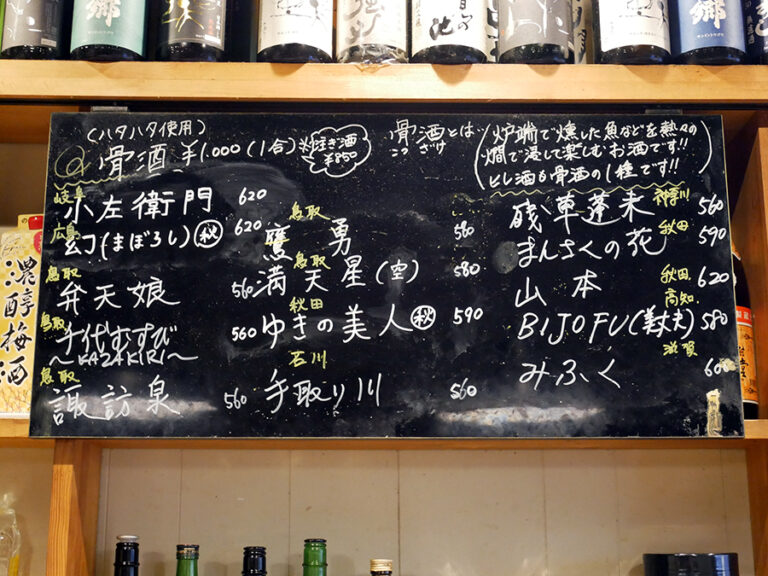 郷
郷
(ハタハタ使用)
骨酒 ¥1.000 (1合)
注ぎ酒
¥850
骨酒とは
こつざけ
炉端で燻した魚などを熱々の
燗で浸して楽しむお酒です!!
ヒレ酒も骨酒の1種です!!
岐阜
小左衛門 620
広島
幻(まぼろし)㊙ 620
鳥取
弁天娘 560
鳥取
千代むすび 560
〜KAZAKIRI〜
鳥取
諏訪泉 560
鳥取
鷹勇 580
鳥取
満天星(空) 580
秋田
ゆきの美人㊙ 590
石川
手取り川 560
神奈川
残草蓬莱 560
秋田
まんさくの花 590
秋田
山本 620
高知
BIJOFU(美丈夫) 580
滋賀
みふく 600
濃醇梅酒